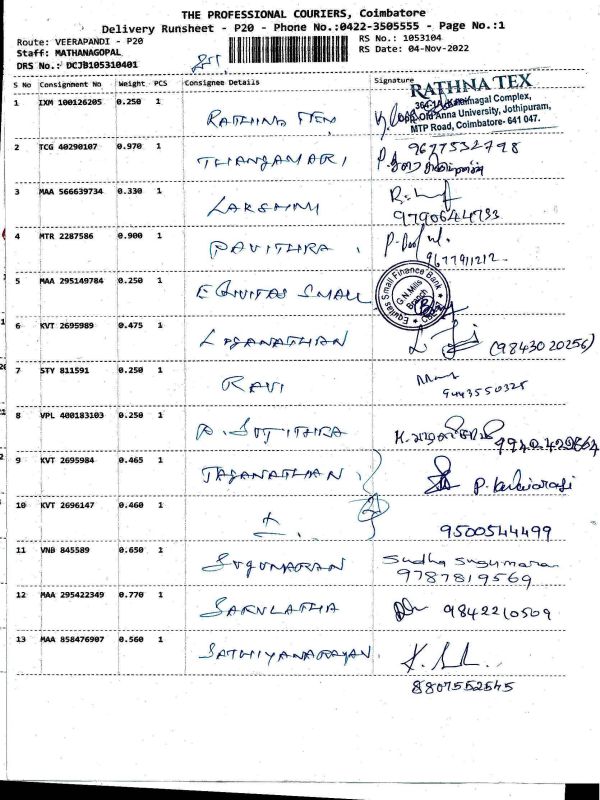 THE PROFESSIONAL COURIERS, Coimbatore
Delivery Runsheet - P20 - Phone No.:0422-3505555 - Page No.:1
Route: VEERAPANDI - P20
RS No.: 1053104
Staff: MATHANAGOPAL
RS Date: 04-Nov-2022
DRS No.: DCJB105310401
S No Consignment No Weight PCS Consignee Details Signature
RATHNA TEX
1 IXM 100126205 0.250 1
Complex,
Old Anna University, Jothipuram,
MTP Road, Coimbatore- 641 047.
2 TCG 40290107 0.970 1 9677532798
3 MAA 566639734 0.330 1 LAKSHMI
9790644733
4 MTR 2287586 0.900 1 PAVITHRA
9677911212
5 MAA 295149784 0.250 1 EQUITAS SMALL
Equitas Small Finance Bank
G.N.Mills
Branch
6 KVT 2695989 0.475 1 LOGANATHAN (9843020256)
7 STY 811591 0.250 1 RAVI
9443550325
8 VPL 400183103 0.250 1
9 KVT 2695984 0.465 1 P.
10 KVT 2696147 0.460 1
9500544499
11 VNB 845589 0.650 1 SUGUMARAN Sudha Sugumaran
9787819569
12 MAA 295422349 0.770 1 SAKULATHA 9842210509
13 MAA 858476907 0.560 1 SATHIYANARAYAN
8807552545